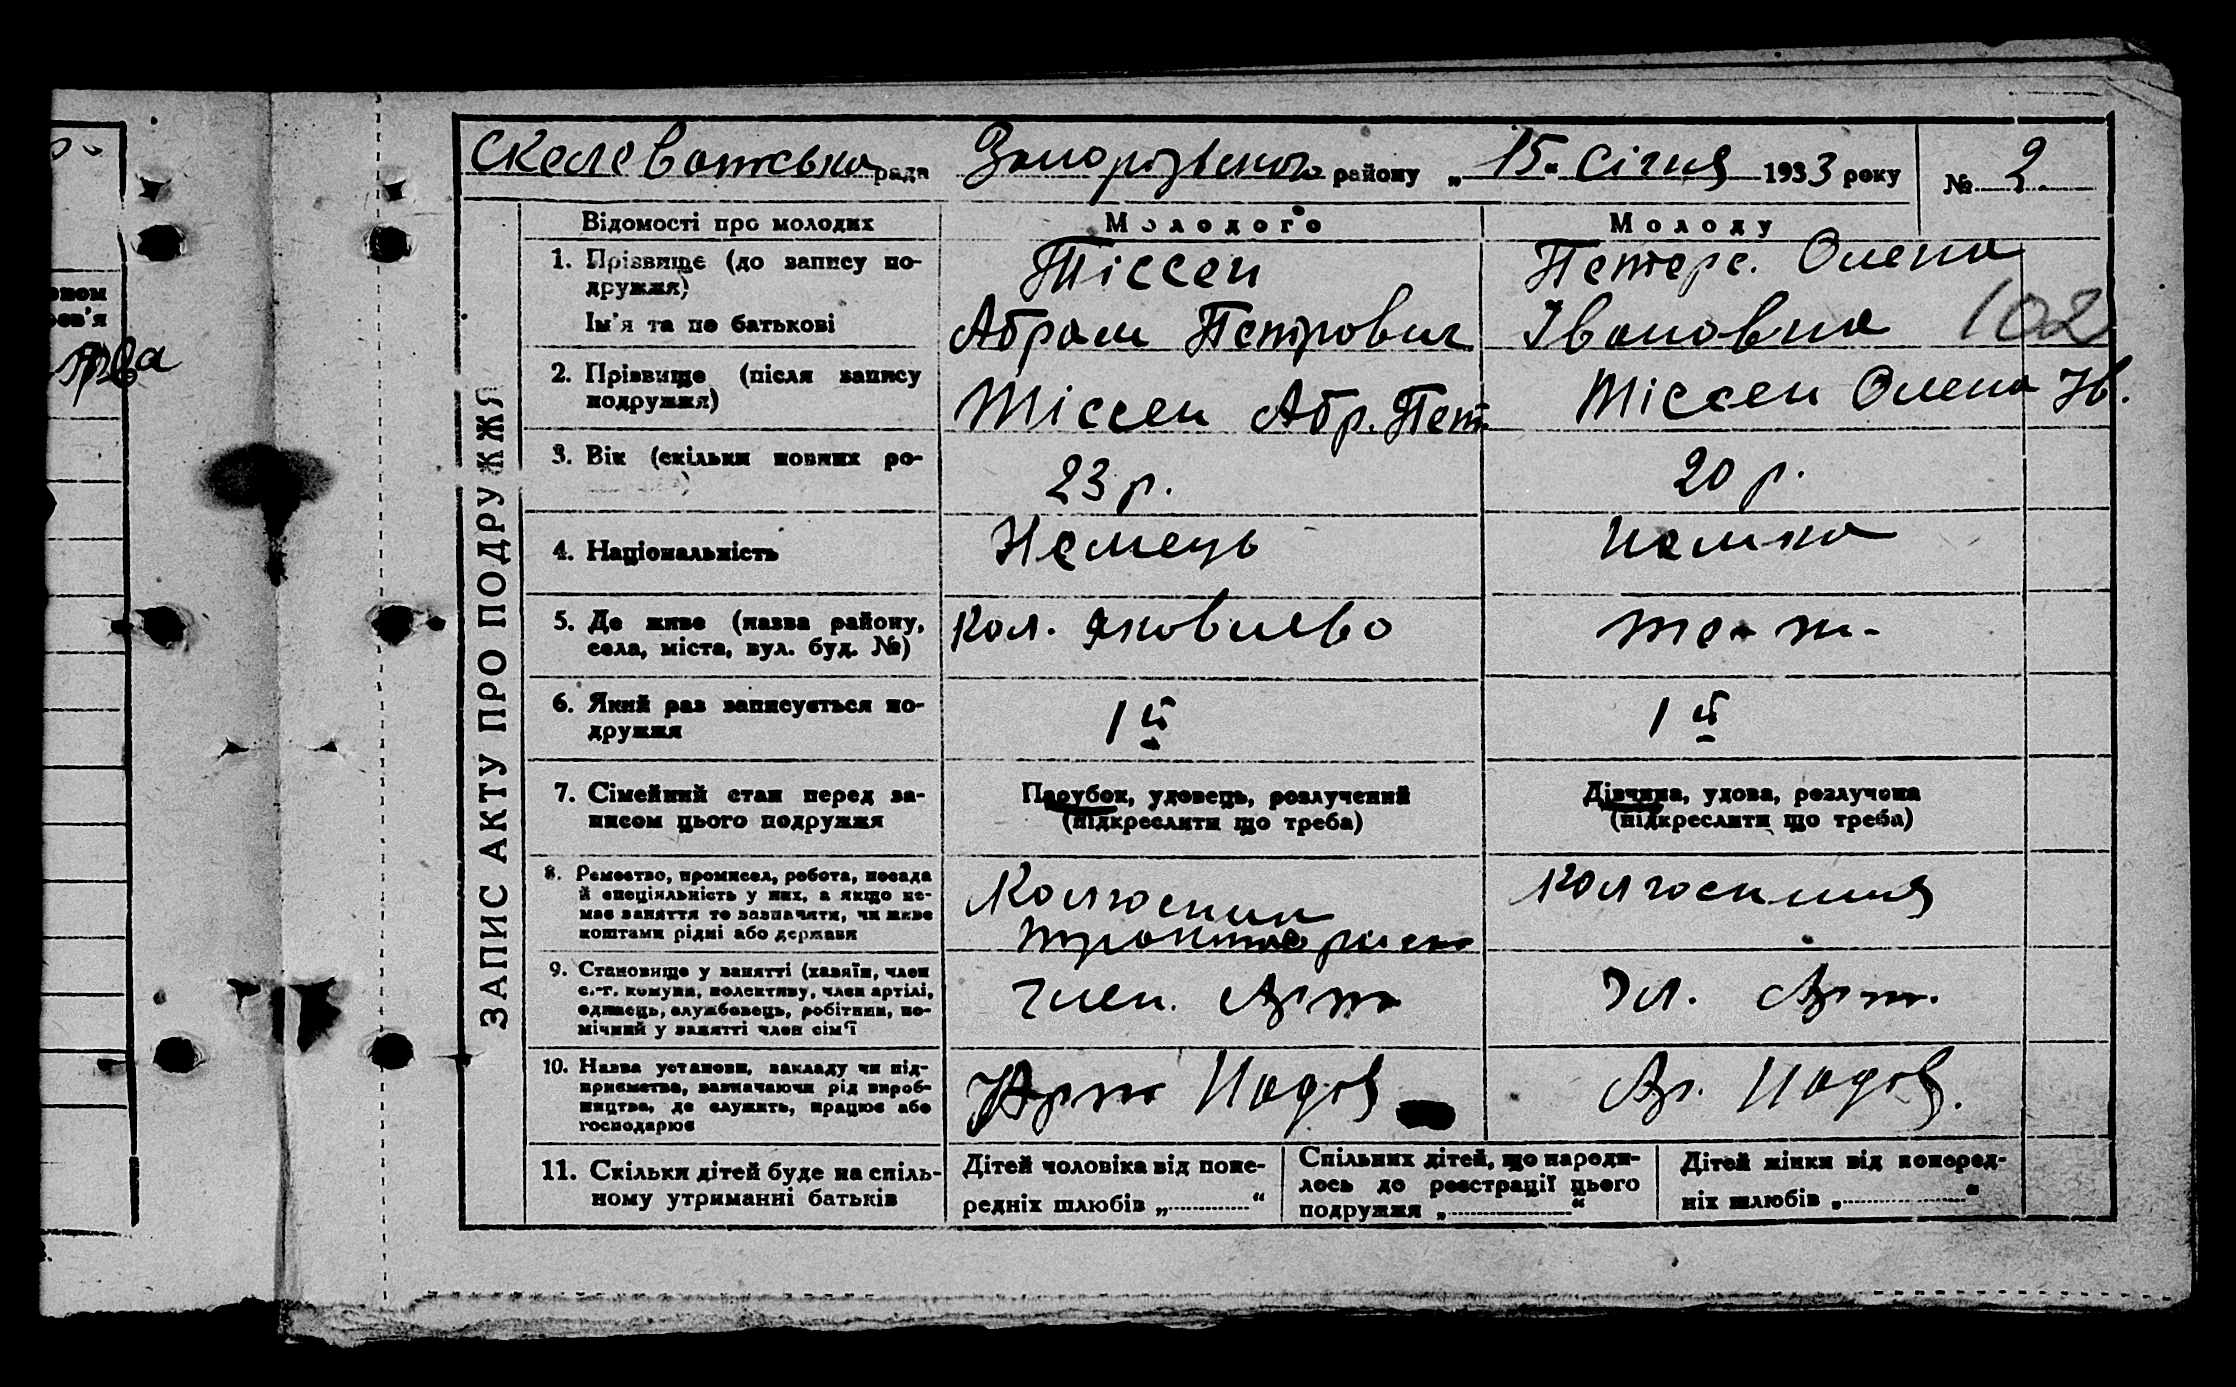 Скелеватська рада Запорізького району „ 15. Січня 1933 року № 2.
ЗАПИС АКТУ ПРО ПОДРУЖЖЯ
Відомості про молодих
Молодого
Молоду
1. Прізвище (до запису по-
дружжя)
Ім'я та по батькові
Тіссен
Абрам Петрович
Петерс. Олена
Івановна
102
2. Прізвище (після запису
подружжя)
Тіссен Абр. Пет.
Тіссен Олена Ів.
3. Вік (скільки повних ро-
23 р.
20 р.
4. Національність
Немець
немка
5. Де живе (назва району,
села, міста, вул. буд. №)
Кол. Яковлево
те-ж-
6. Який раз записується по-
дружжя
1й
1й
7. Сімейний стан перед за-
писом цього подружжя
Парубок, удовець, розлучений
(підкреслити що треба)
Дівчина, удова, розлучена
(підкреслити що треба)
8. Ремество, промисел, робота, посада
й спеціяльність у них, а якщо не-
має заняття то зазначити, чи живе
коштами рідні або держави
Колгоспник
тракторист
колгоспниця
9. Становище у занятті (хазяїн, член
с.-г. комуни, колективу, член артілі,
одинець, службовець, робітник, по-
мічний у занятті член сім'ї
член. Арт
Чл. Арт.
10. Назва установи, закладу чи під-
приємства, зазначаючи рід вироб-
ництва, де служить, працює або
господарює
Арт Надія
Ар. Надія.
11. Скільки дітей буде на спіль-
ному утриманні батьків
Дітей чоловіка від попе-
редніх шлюбів „ “
Спільних дітей, що народи-
лось до реєстрації цього
подружжя „ “
Дітей жінки від поперед-
ніх шлюбів „ “